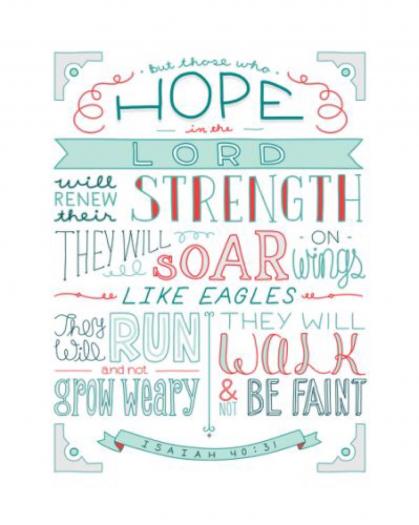 but those who
HOPE
in the
LORD
will
RENEW
their
STRENGTH
THEY WILL
SOAR
-ON-
wings
LIKE EAGLES
They
Will
RUN
and not
grow weary
THEY WILL
WALK
&
NOT
BE FAINT
ISAIAH 40:31